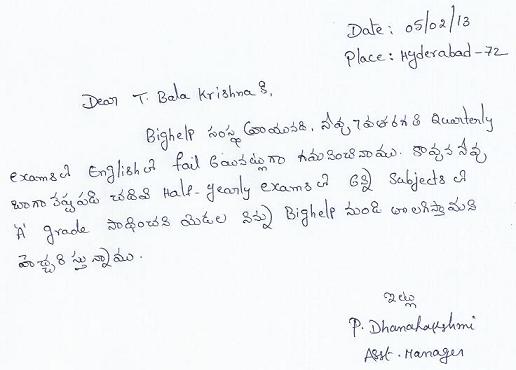 Date: 05/02/13
Place: Hyderabad-72
Dear T. Bala Krishna కి,
Bighelp సంస్థ వ్రాయునది, నీవు 7వతరగతి Quarterly
exams లో English లో fail అయినట్లుగా గమనించినాము. కావున నీవు
బాగా కష్టపడి చదివి Half-yearly exams లో అన్ని Subjects లో
'A' grade సాధించని యెడల నిన్ను Bighelp నుండి తొలగిస్తామని
హెచ్చరిస్తున్నాము.
ఇట్లు
P. Dhanalakshmi
Asst. Manager